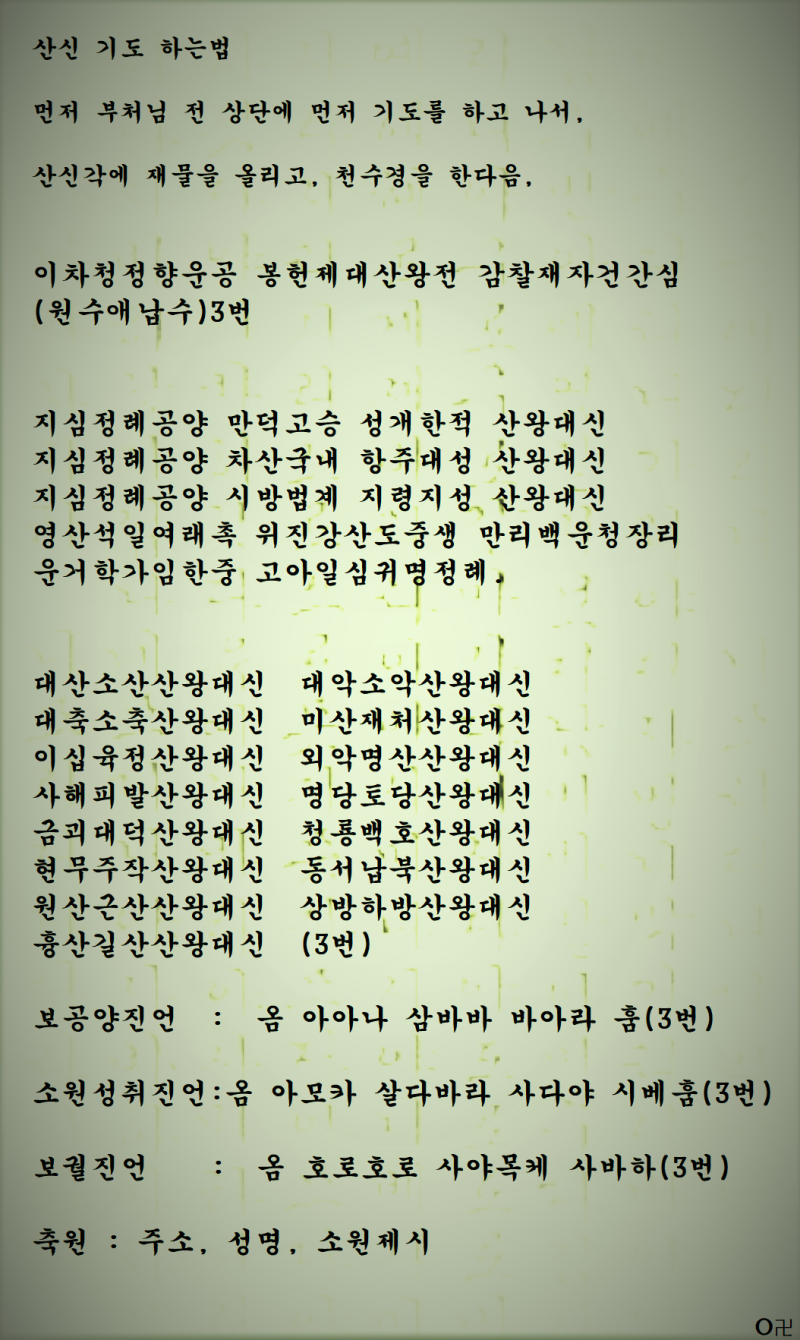 산신 기도 하는법
먼저 부처님 전 상단에 먼저 기도를 하고 나서,
산신각에 재물을 올리고, 천수경을 한다음,
이차청정향운공 봉헌제대산왕전 감찰재자건간심
(원수애납수)3번
지심정례공양 만덕고승 성개한적 산왕대신
지심정례공양 차산국내 항주대성 산왕대신
지심정례공양 시방법계 지령지성 산왕대신
영산석일여래촉 위진강산도중생 만리백운청장리
운거학가임한중 고아일심귀명정례.
대산소산산왕대신 대악소악산왕대신
대축소축산왕대신 미산재처산왕대신
이십육정산왕대신 외악명산산왕대신
사해피발산왕대신 명당토당산왕대신
금괴대덕산왕대신 청룡백호산왕대신
현무주작산왕대신 동서남북산왕대신
원산근산산왕대신 상방하방산왕대신
흉산길산산왕대신 (3번)
보공양진언 : 옴 아아나 삼바바 바아라 훔(3번)
소원성취진언:옴 아모카 살다바라 사다야 시베훔(3번)
보궐진언 : 옴 호로호로 사야목케 사바하(3번)
축원 : 주소, 성명, 소원제시
O卍